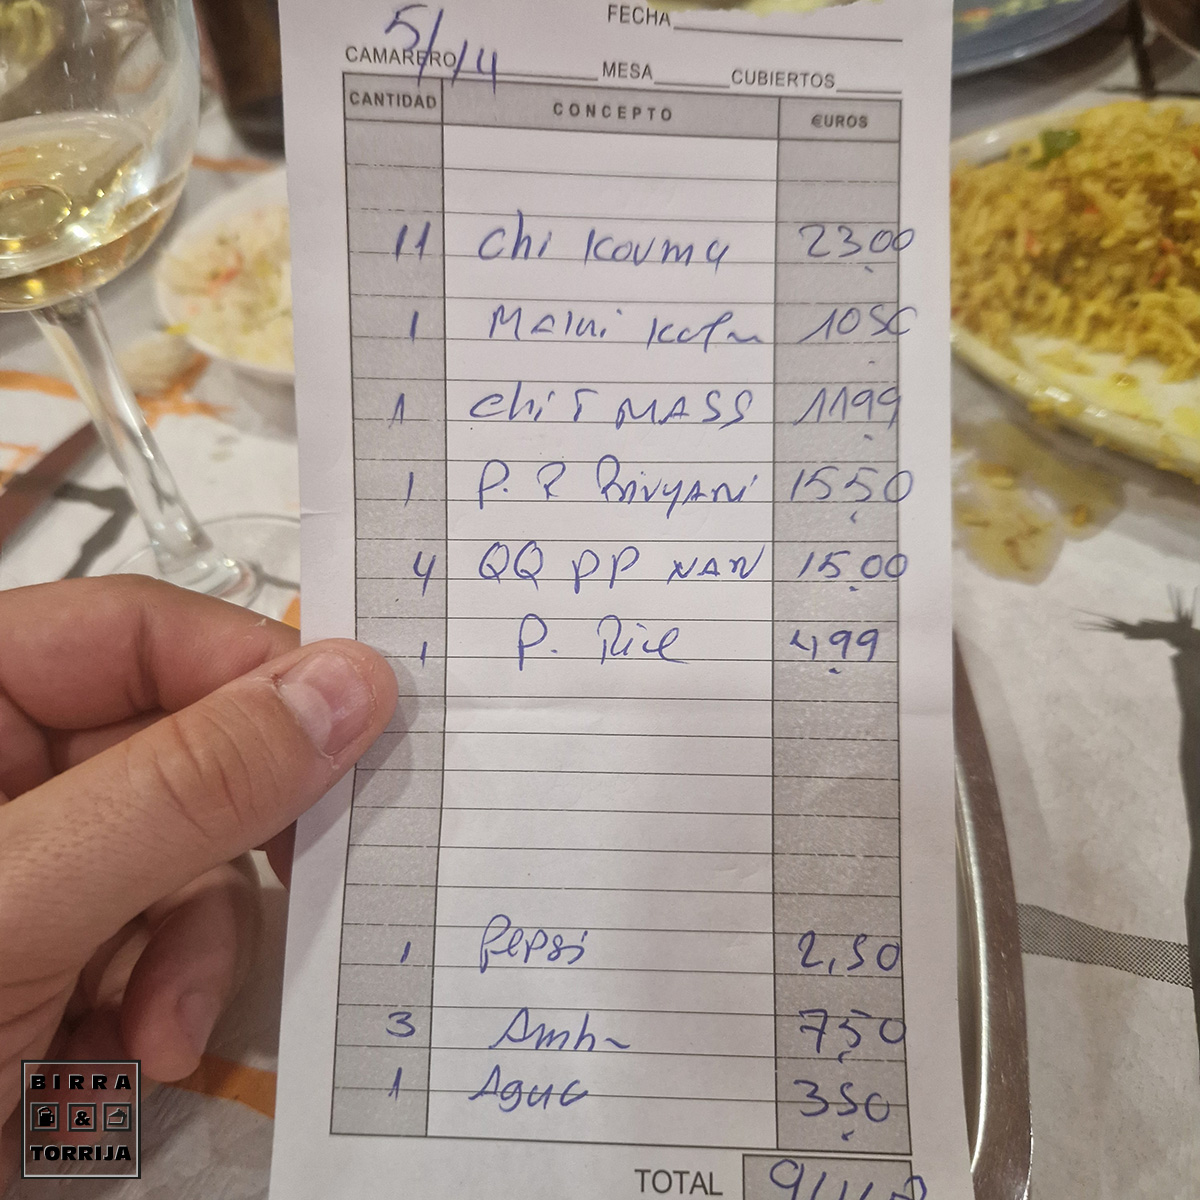 FECHA
5/14
CAMARERO MESA CUBIERTOS
CANTIDAD CONCEPTO €UROS
11 Chi Kovma 23.00
1 Malai 10.50
1 Chi T MASS 11.99
1 P. R Bivyani 15.50
4 QQ PP NAN 15.00
1 P. Rice 4.99
1 Pepsi 2,50
3 7.50
1 Agua 3.50
TOTAL
BIRRA
&
TORRIJA